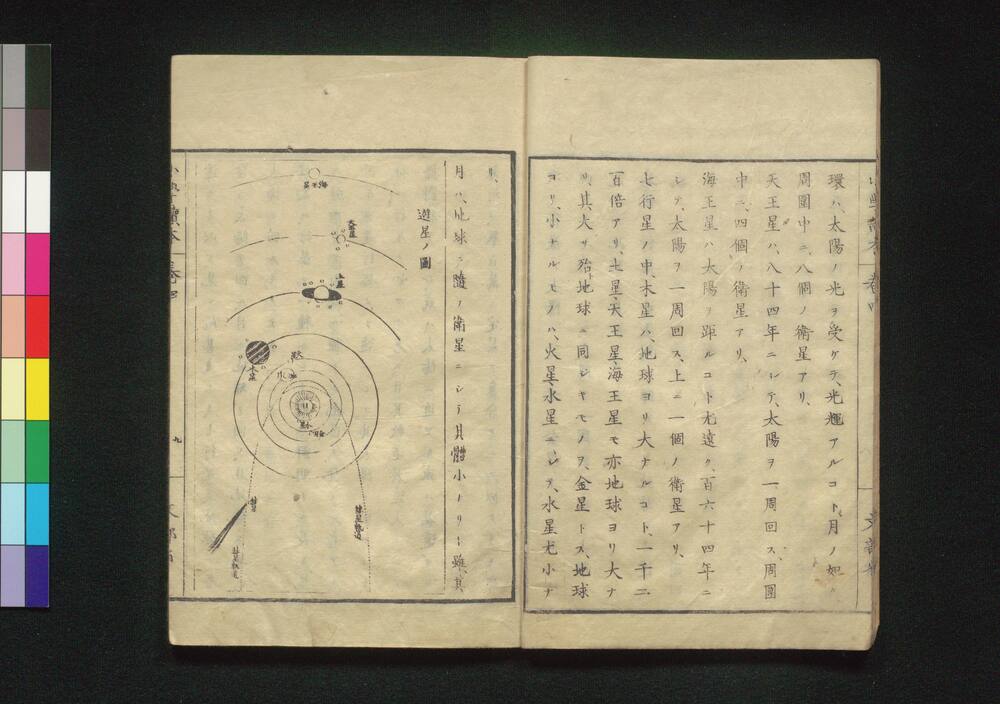 環ハ、太陽ノ光ヲ受ケテ、光輝アルコト、月ノ如
周圍中ニ、八個ノ衛星アリ、
天王星ハ、八十四年ニシテ、太陽ヲ一周回ス、周圍
中ニ、四個ノ衛星アリ、
海王星ハ太陽ヲ距ルコト尤遠ク、百六十四年ニ
シテ、太陽ヲ一周回ス、上ニ一個ノ衛星アリ、
七行星ノ中、木星ハ、地球ヨリ大ナルコト、一千二
百倍アリ、土星、天王星、海王星モ亦地球ヨリ大ナ
リ、其大サ殆ト地球ニ同シキモノヲ、金星トス、地球
ヨリ、小ナルモノハ、火星、水星ニシテ、水星尤小ナ
リ、
月ハ、地球ニ隨ノ衛星ニシテ其體小ノリト雖、其
遊星ノ圖
海王星
天王星
土星
木星
彗星
彗星軌道
彗星軌道
九